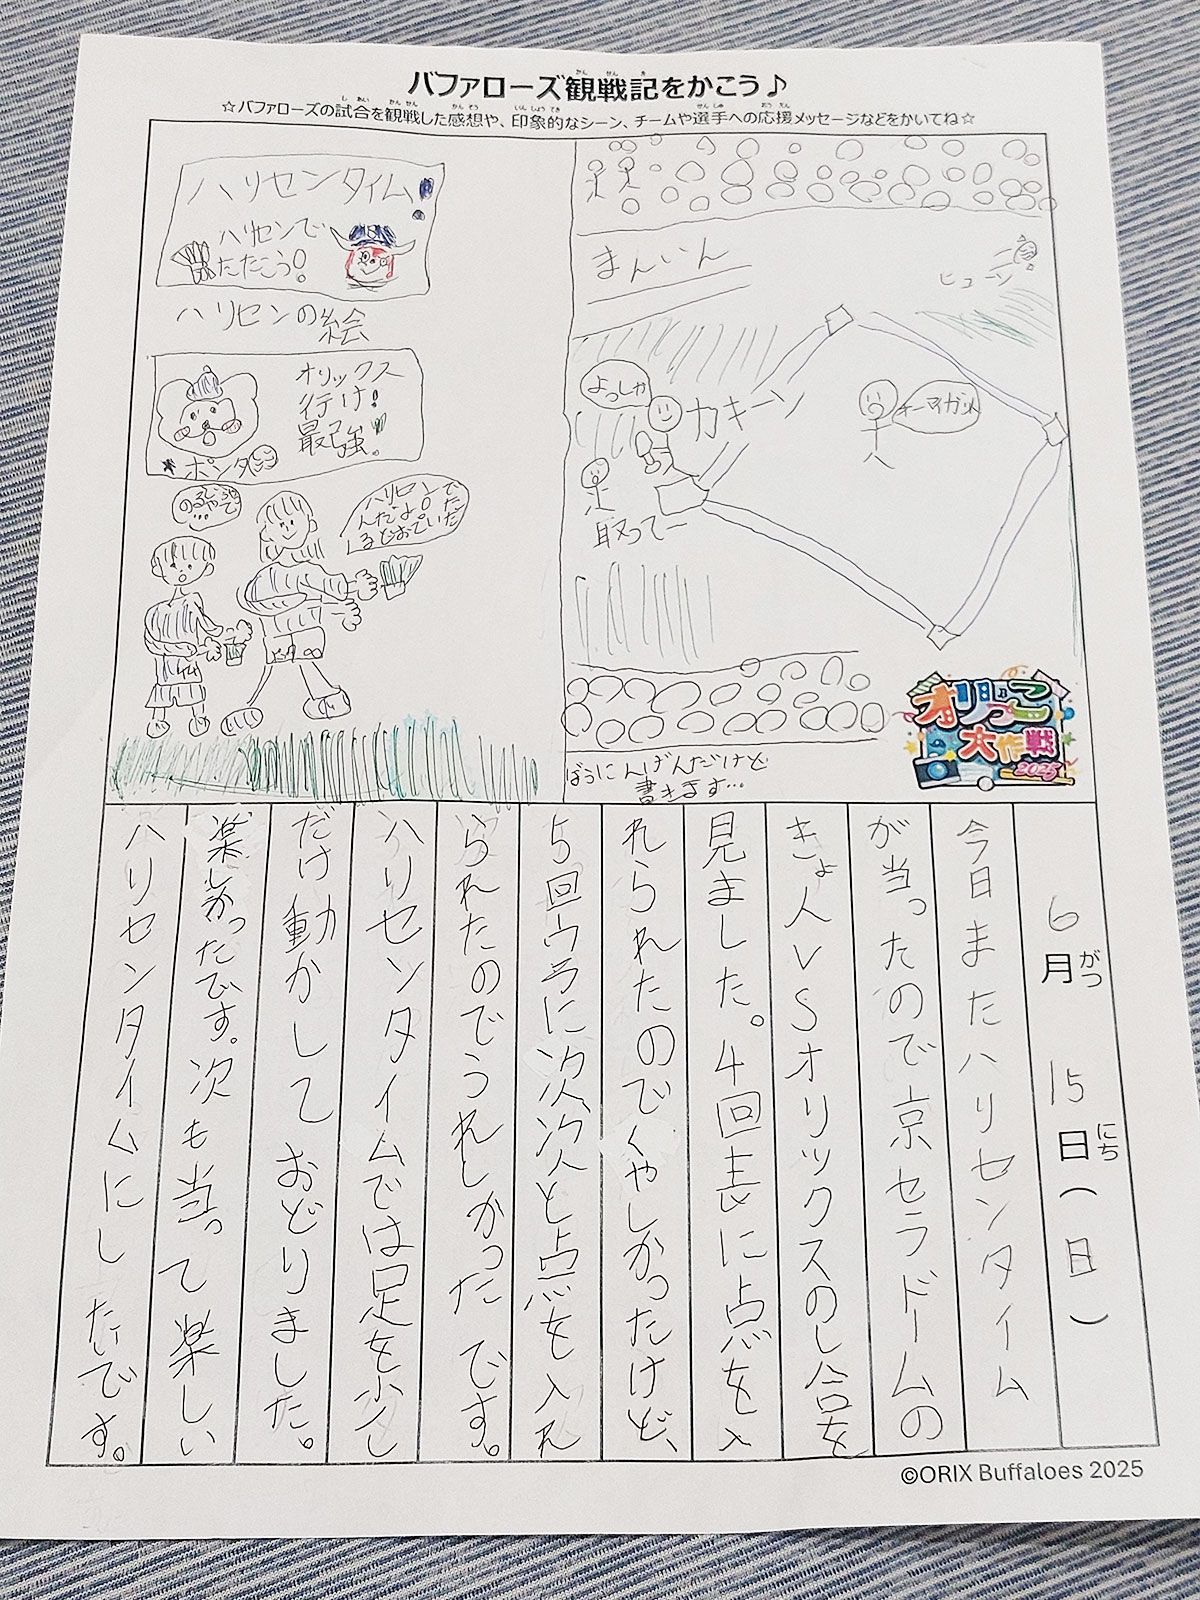 バファローズ観戦記をかこう♪
☆バファローズの試合を観戦した感想や、印象的なシーン、チームや選手への応援メッセージなどをかいてね☆
ハリセンタイム!
ハリセンで
たたこう!
ハリセンの絵
オリックス
行け!
最強!
ポンタ
ハリセンで
まんいん
ヒューン
よっしゃ
カキーン
オーマイガット
取ってー
ぼうにんげんだけど
書きます…
オリっこ
大作戦
2025
6月がつ 15日にち(日)
今日またハリセンタイム
が当ったので京セラドームの
きょ人VSオリックスのし合を
見ました。4回表に点を入
れられたのでくやしかったけど、
5回ウラに次次と点を入れ
られたのでうれしかったです。
ハリセンタイムでは足を少し
だけ動かしておどりました。
楽しかったです。次も当って楽しい
ハリセンタイムにしたいです。
©ORIX Buffaloes 2025